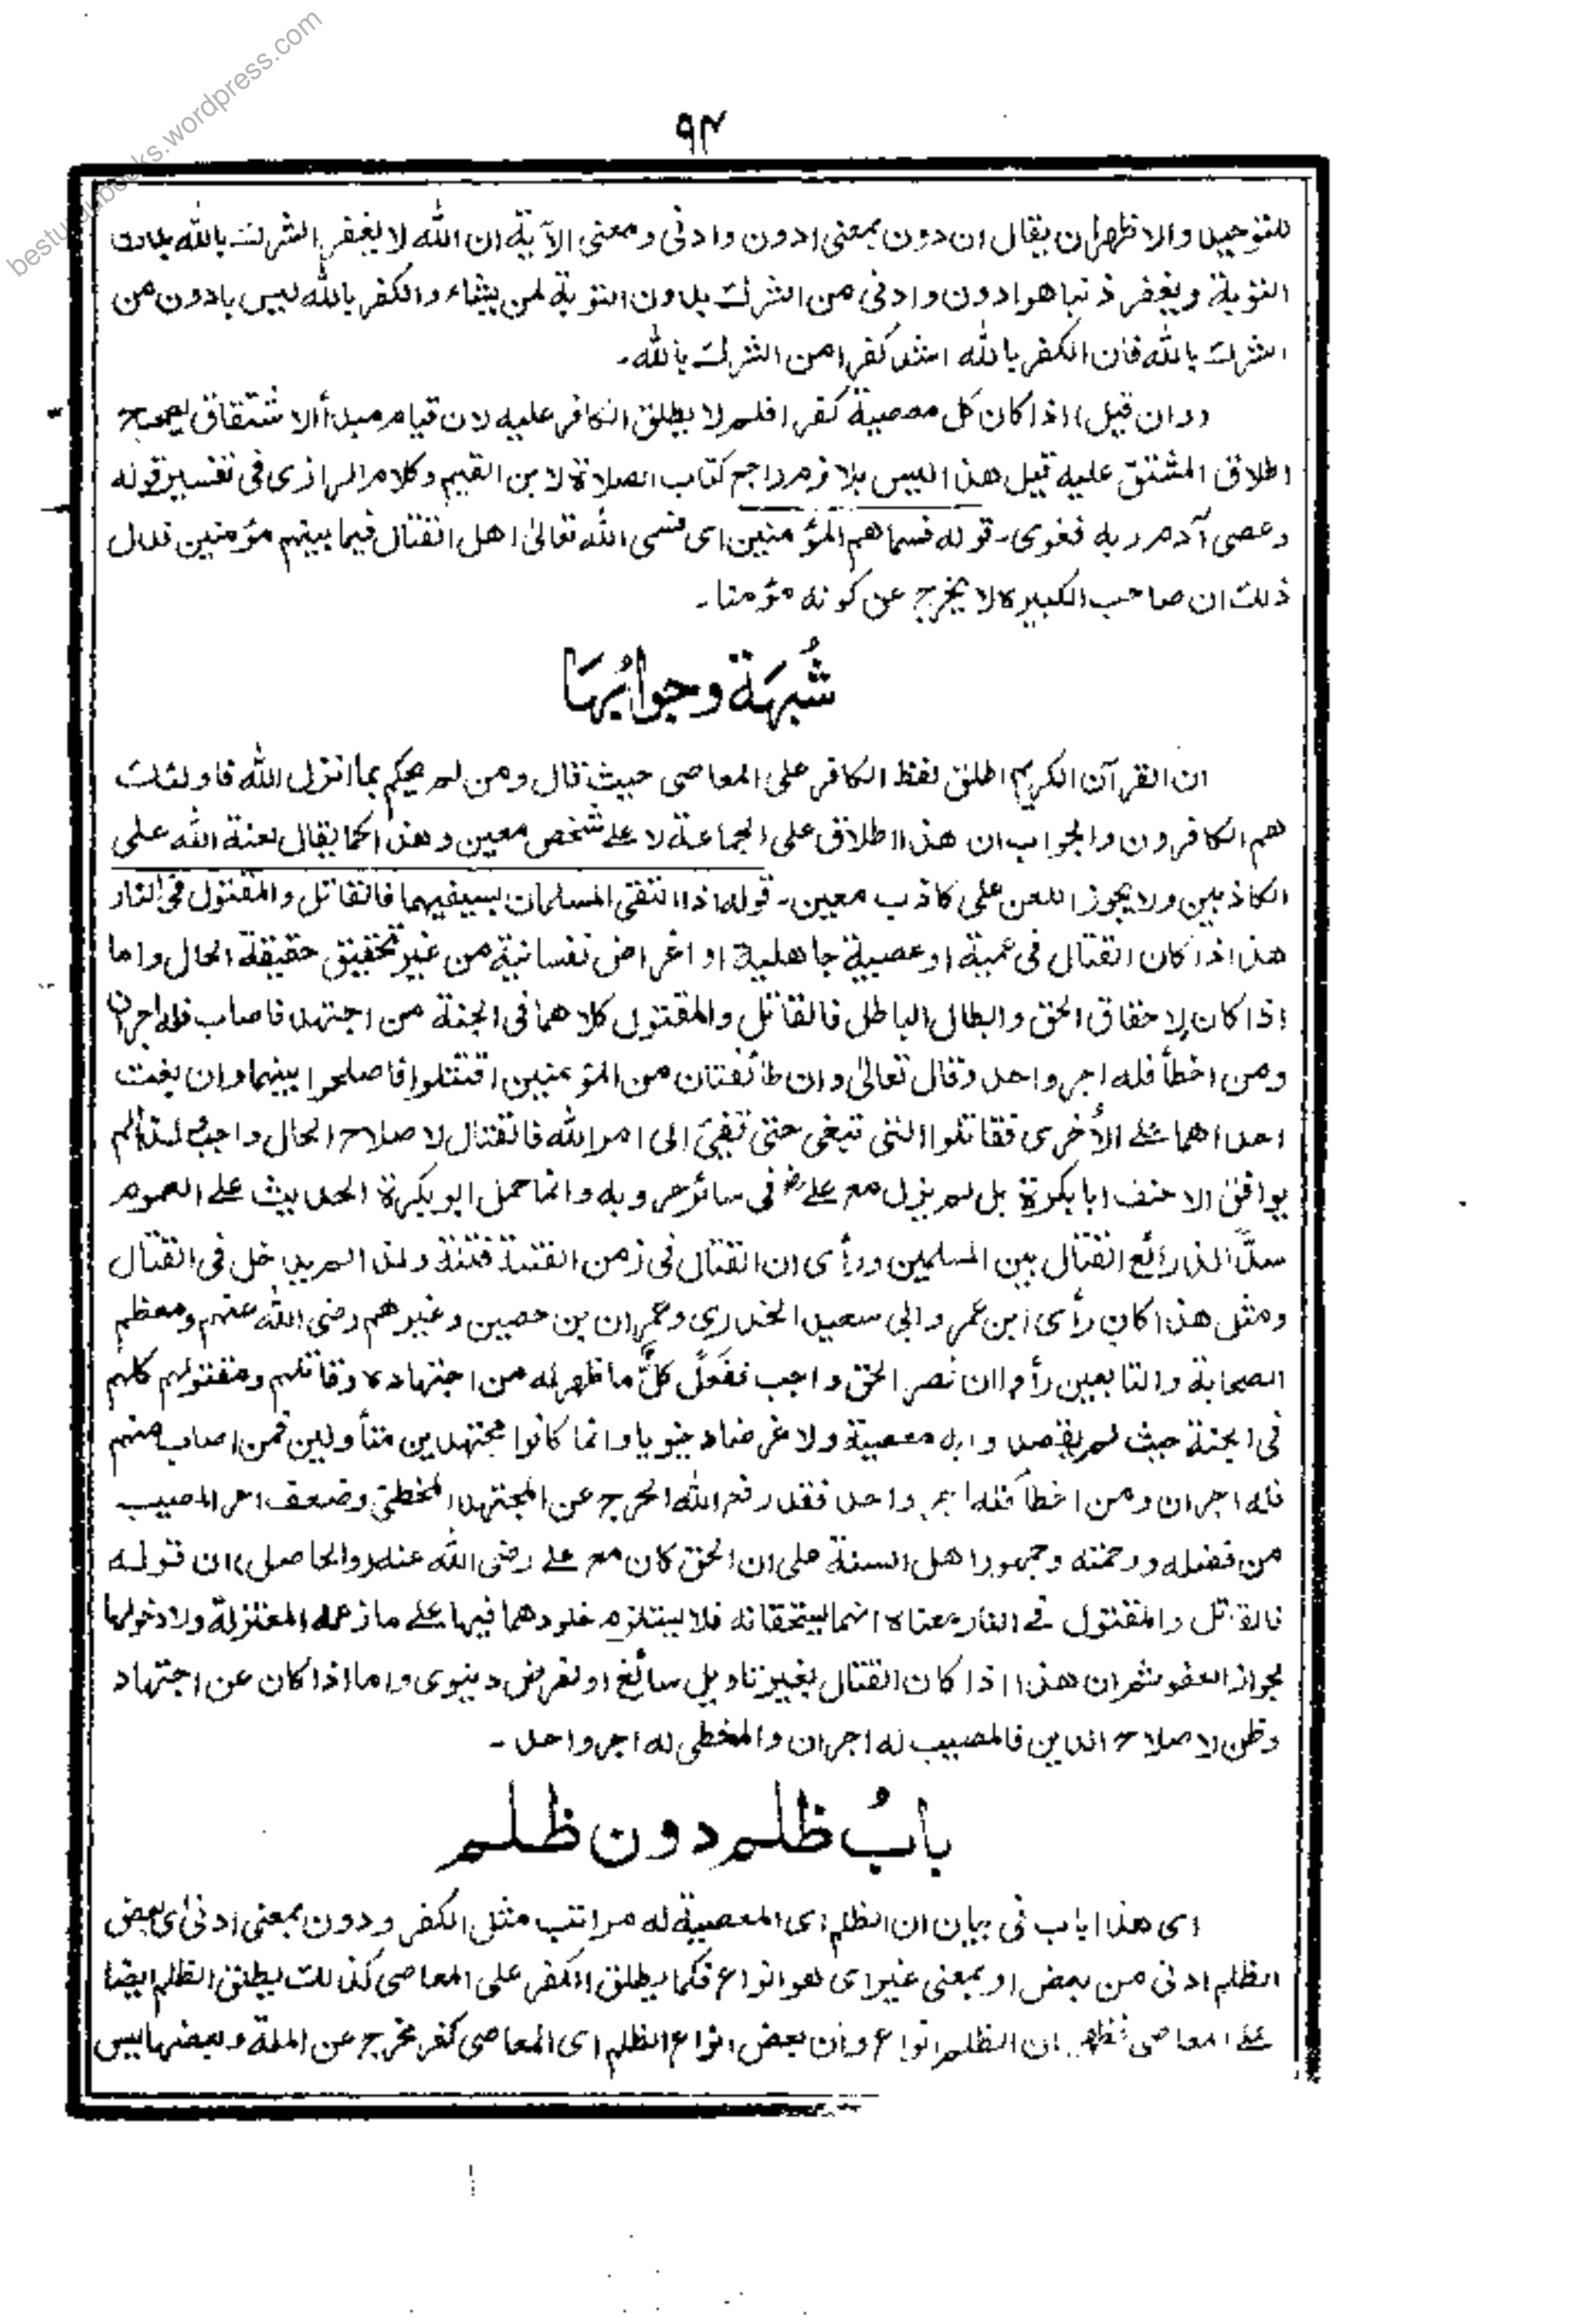 ٩٤
للتوحيد والاظهر ان يقال ان دون بمعنى ادون وادنى ومعنى الآية ان الله لا يغفر الشرك بالله بدون
التوبة ويغفر ذنبا هو ادون وادنى من الشرك بدون التوبة لمن يشاء والكفر بالله ليس بادون من
الشرك بالله فان الكفر بالله اشد كفرا من الشرك بالله۔
(وان قيل) اذا كان كل معصية كفرا فلم لا يطلق الكافر عليه لان قيام مبدأ الاشتقاق يصحح
اطلاق المشتق عليه قيل هذا ليس بلازم راجع كتاب الصلاة لابن القيم وكلام الرازى فى تفسير قوله
وعصى آدم ربه فغوى۔ قوله فسماهم المؤمنين اى فسمى الله تعالىٰ اهل القتال فيما بينهم مؤمنين فدل
ذلك ان صاحب الكبيرة لا يخرج عن كونه مؤمنا۔
شُبهَة وجوابُهَا
ان القرآن الكريم اطلق لفظ الكافر على المعاصى حيث قال ومن لم يحكم بما انزل الله فاولئك
هم الكافرون والجواب ان هذا اطلاق على الجماعة لا علے شخص معين وهذا كما يقال لعنة الله على
الكاذبين ولا يجوز اللعن على كاذب معين۔ قوله اذا التقى المسلمان بسيفيهما فالقاتل والمقتول فى النار
هذا اذا كان القتال فى عمية او عصبية جاهلية او اغراض نفسانية من غير تحقيق حقيقة الحال واما
اذا كان لاحقاق الحق وابطال الباطل فالقاتل والمقتول كلاهما فى الجنة من اجتهد فاصاب فله اجران
ومن اخطأ فله اجر واحد وقال تعالىٰ وان طائفتان من المؤمنين اقتتلوا فاصلحوا بينهما وان بغت
احداهما علے الأخرى فقاتلوا التى تبغى حتى تفئ الى امر الله فالقتال لاصلاح الحال واجب لهذا لم
يوافق الاحنف ابا بكرة بل لم يزل مع علےؓ فى سائر حروبه وانما حمل ابو بكرة الحديث علے العموم
سدًّا لذرائع القتال بين المسلمين ورأى ان القتال فى زمن الفتنة فتنة ولذا لم يدخل فى القتال
ومثل هذا كان رأى ابن عمر وابى سعيد الخدرى وعمران بن حصين وغيرهم رضى الله عنهم ومعظم
الصحابة والتابعين رأوا ان نصر الحق واجب ففعل كلٌّ ما ظهر له من اجتهاده وقاتلهم ومقتولهم كلهم
فى الجنة حيث لم يقصدوا به معصية ولا غرضا دنيويا وانما كانوا مجتهدين متأولين فمن اصاب منهم
فله اجران ومن اخطأ فله اجر واحد فقد رفع الله الحرج عن المجتهد المخطئ وضعف اجر المصيب
من فضله ورحمته وجمهور اهل السنة على ان الحق كان مع علے رضى الله عنه (والحاصل) ان قوله
فالقاتل والمقتول فے النار معناه انهما يستحقانه فلا يستلزم خلودهما فيها علے ما زعمه المعتزلة ولا دخولها
لجواز العفو ثم ان هذا اذا كان القتال بغير تاويل سائغ او لغرض دنيوى واما اذا كان عن اجتهاد
وظن لاصلاح الدين فالمصيب له اجران والمخطى له اجر واحد۔
بابُ ظلم دون ظلم
اى هذا باب فى بيان ان الظلم اى المعصية له مراتب مثل الكفر ودون بمعنى ادنى اى بعض
الظلم ادنى من بعض او بمعنى غير اى هو انواع فكما يطلق الكفر على المعاصى كذلك يطلق الظلم ايضا
علے المعاصى فظهر ان الظلم انواع وان بعض انواع الظلم اى المعاصى كفر مخرج عن الملة وبعضها ليس